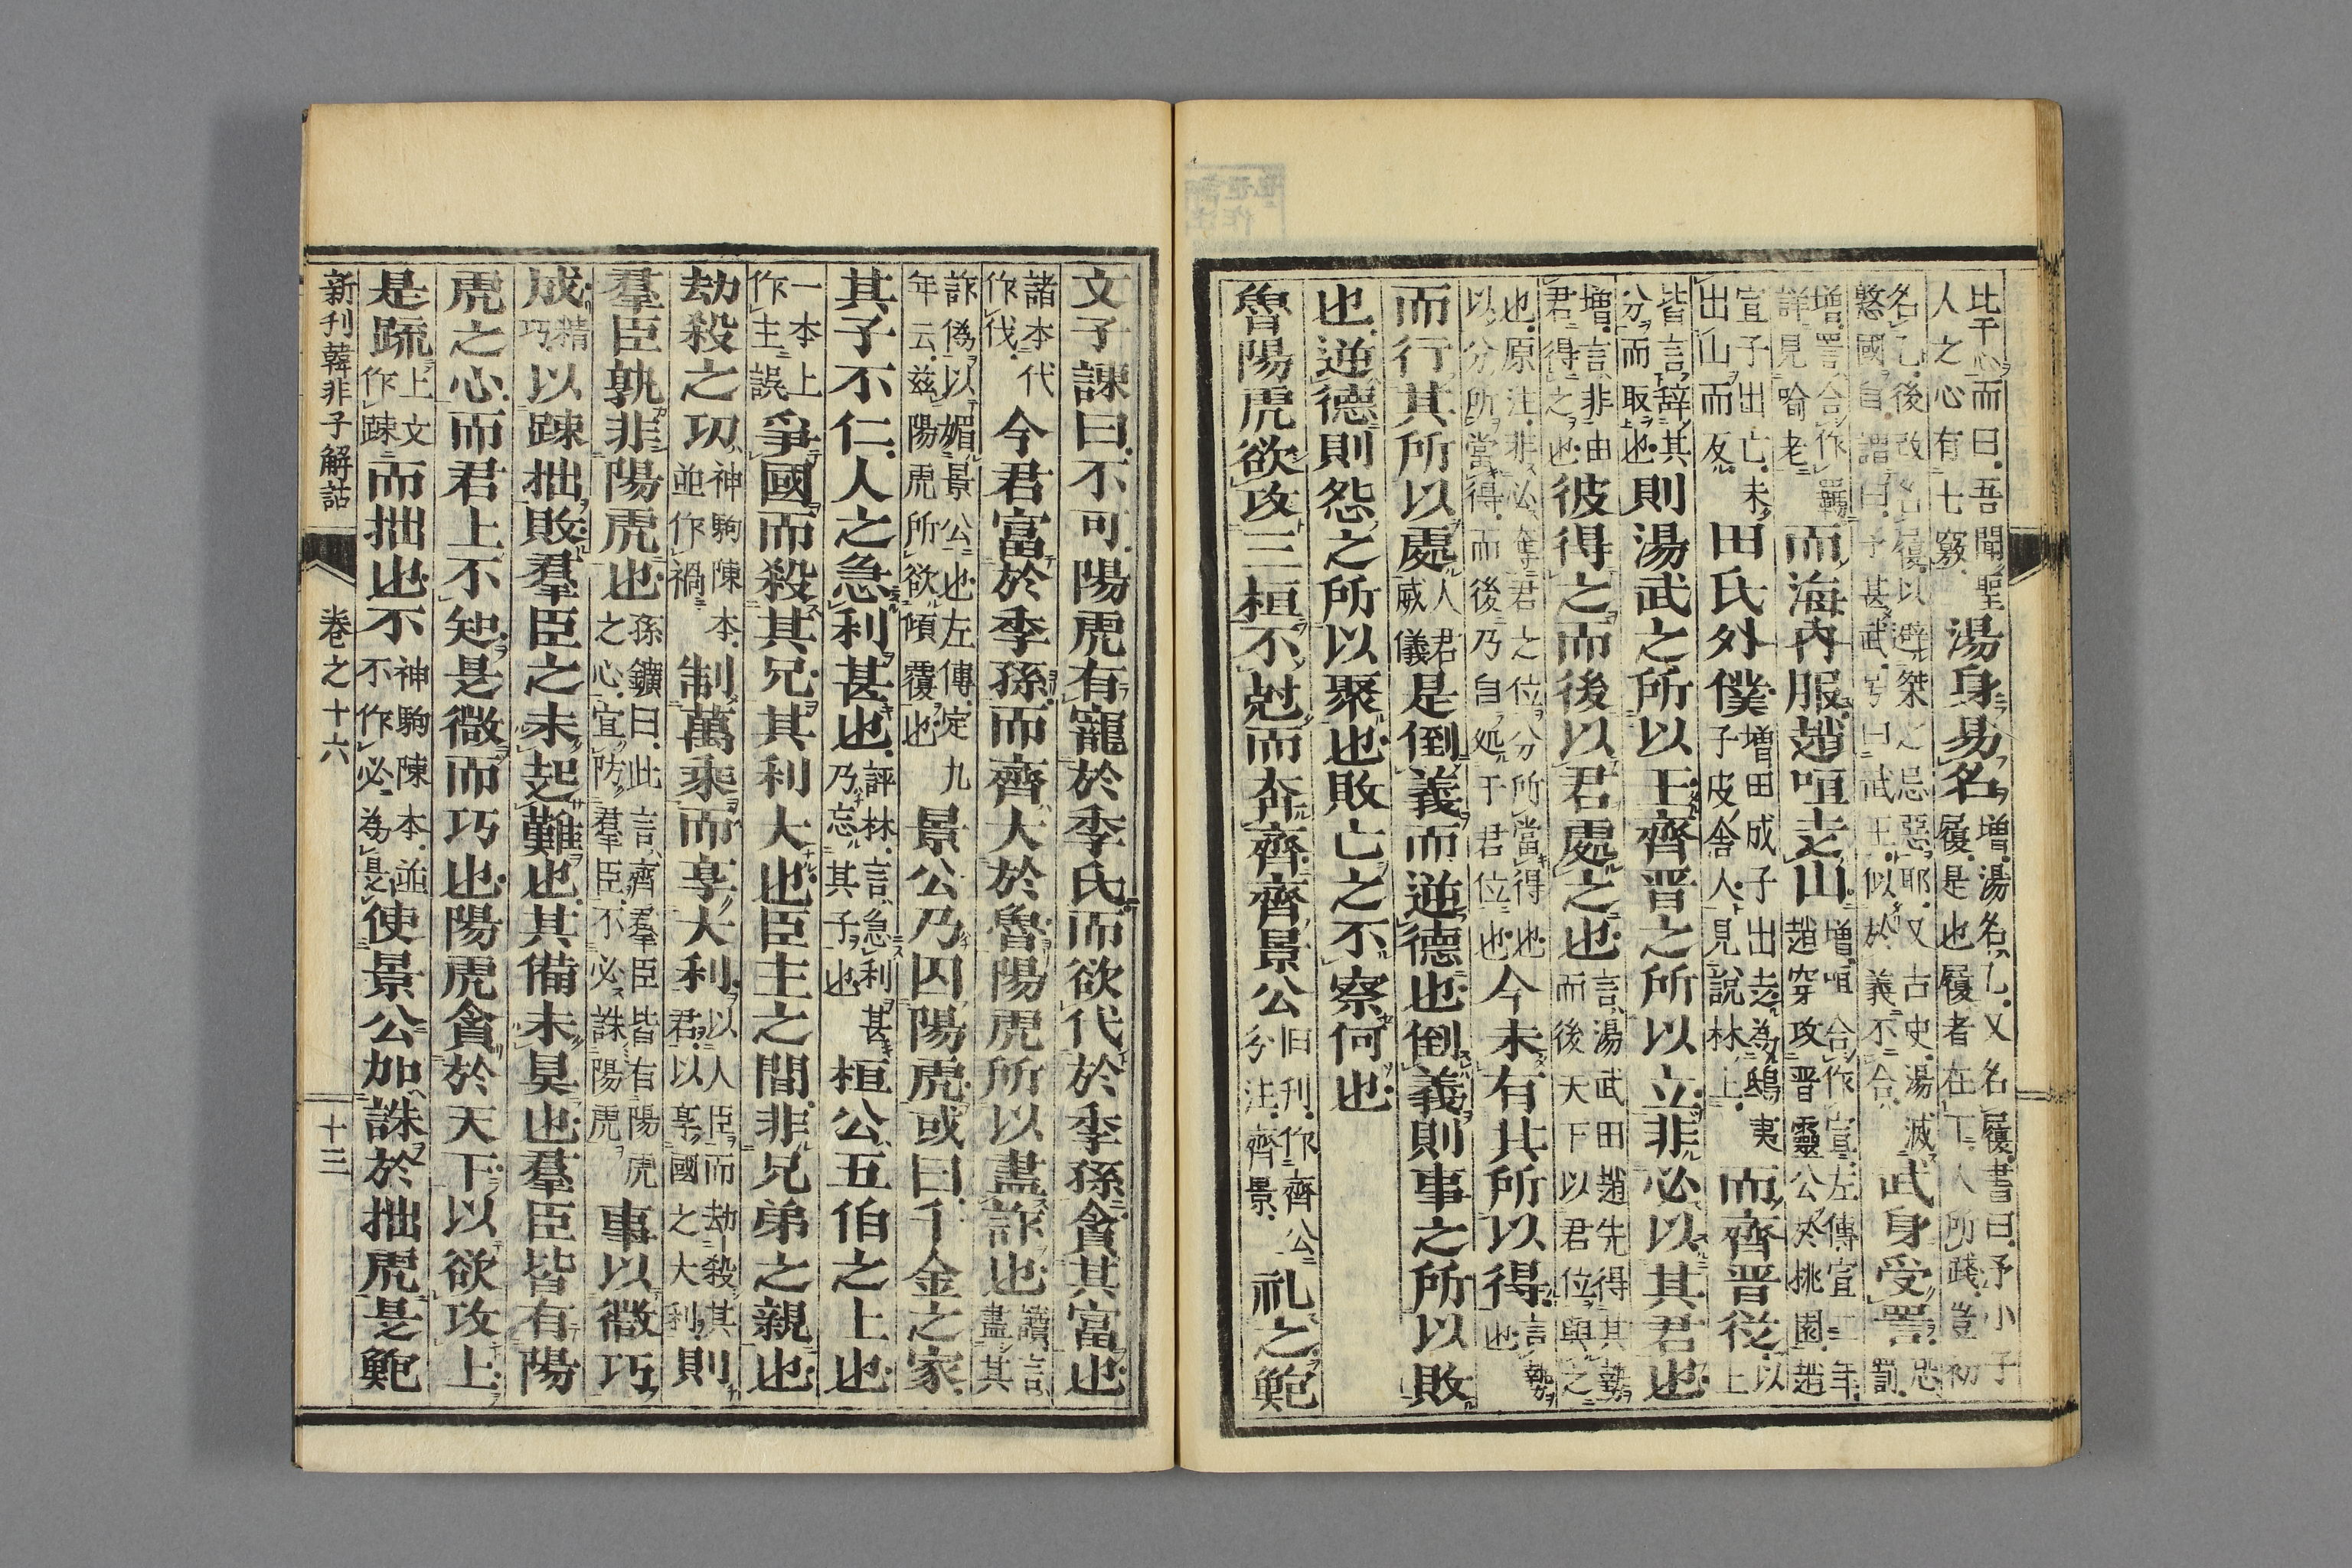 比干心而曰吾聞聖人之心有七竅湯身易名增湯名乙又名履書曰予小子履是也履者在丁人所踐豈初
名乙後改名履以避桀之忌惡耶又古史湯滅憗國自謂曰予甚武号曰武王似於義不合武身受詈恐罰
增詈合作羈詳見喻老而海內服趙咺走山增咺合作宣左傳宣二年趙穿攻晋靈公於桃園趙
宣子出亡未出山而反田氏外僕增田成子出走為鴟夷子皮舍人見說林上而齊晋從以上
皆言辭其分而取也則湯武之所以王齊晋之所以立非必以其君也
增言非由君得之也彼得之而後以君處之也言湯武田趙先得其勢而後天下以君位與之
也原注非必奪君之位分所當得也以分所當得而後乃自処于君位也今未有其所以得言勢也
而行其所以處人君威儀是倒義而逆德也倒義則事之所以敗
也逆德則怨之所以聚也敗亡之不察何也
魯陽虎欲攻三桓不尅而奔齊齊景公旧刊作齊公分注齊景礼之鮑
文子諫曰不可陽虎有寵於季氏而欲代於季孫貪其富也
諸本代作伐今君富於季孫而齊大於魯陽虎所以盡詐也讀言盡其
詐偽以媚景公也左傳定九年云茲陽虎所欲傾覆也景公乃囚陽虎或曰千金之家
其子不仁人之急利甚也評林言急利甚乃忘其子也桓公五伯之上也
一本上作主誤爭國而殺其兄其利大也臣主之間非兄弟之親也
劫殺之功神駒陳本並作禍制萬乘而享大利以人臣而劫殺其君以享國之大利則
羣臣孰非陽虎也孫鑛曰此言齊羣臣皆有陽虎之心宜防羣臣不必誅陽虎事以微巧
成精巧以踈拙敗羣臣之未起難也其備未具也羣臣皆有陽
虎之心而君上不知是微而巧也陽虎貪於天下以欲攻上
是疏上文作踈而拙也不神駒陳本並不作必為是使景公加誅於拙虎是鮑
新刊韓非子解詁　卷之十六　十三